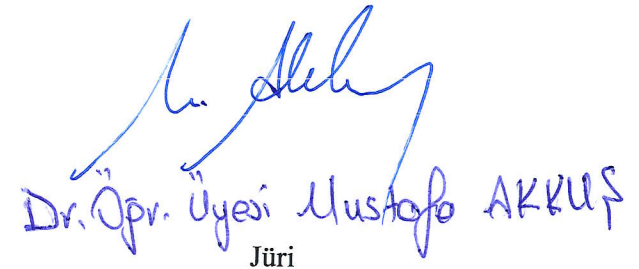 Dr. Öğr. Üyesi Mustafa AKKUŞ
Jüri